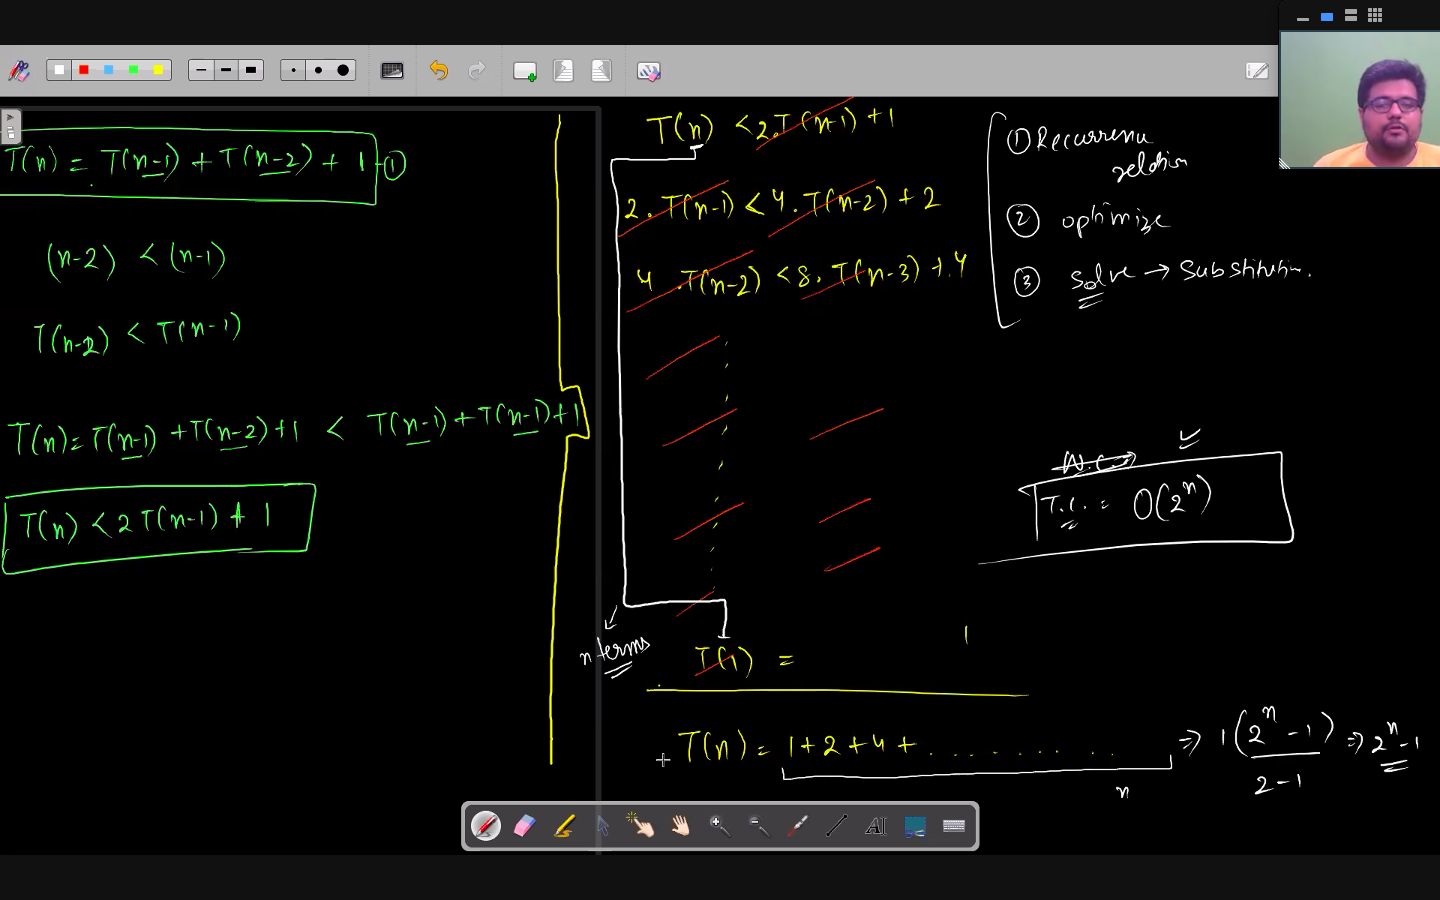 T(n) = T(n-1) + T(n-2) + 1 - ①
(n-2) < (n-1)
T(n-2) < T(n-1)
T(n) = T(n-1) + T(n-2) + 1 < T(n-1) + T(n-1) + 1
T(n) < 2 T(n-1) + 1
T(n) < 2.T(n-1) + 1
2. T(n-1) < 4. T(n-2) + 2
4. T(n-2) < 8. T(n-3) + 4
n terms
T(1) = 1
T(n) = 1 + 2 + 4 + . . . . . . . . . ⇒ 1(2^n - 1) / 2 - 1 ⇒ 2^n - 1
n
① Recurrence
relation
② optimize
③ solve → Substitution.
T.C. = O(2^n)
AI